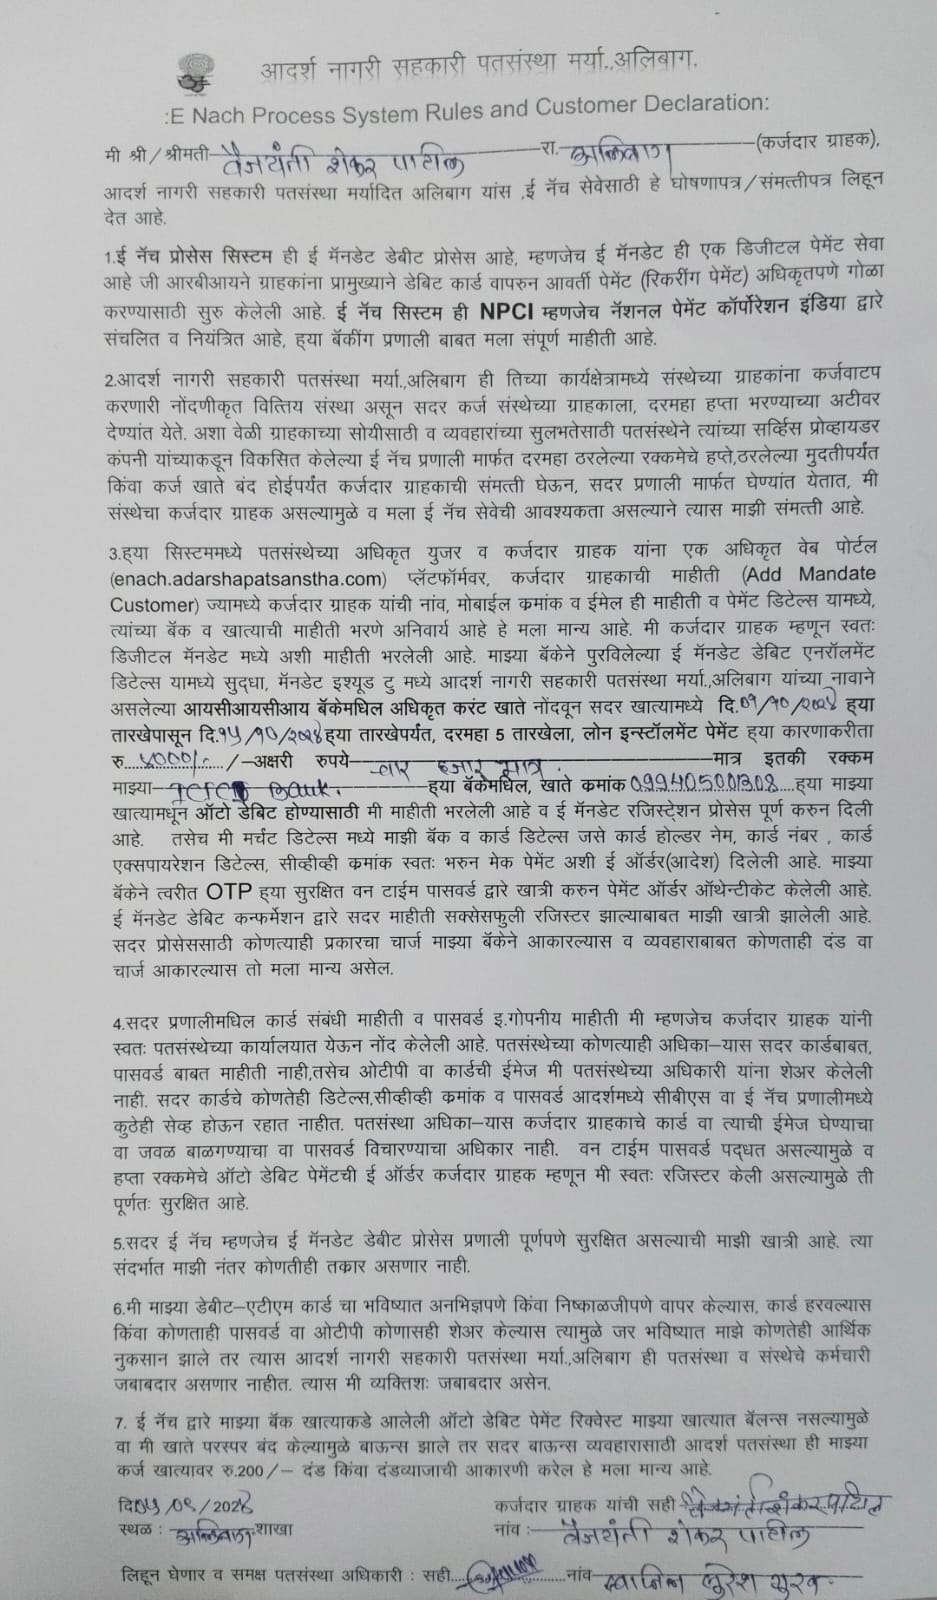 आदर्श नागरी सहकारी पतसंस्था मर्या.,अलिबाग.
:E Nach Process System Rules and Customer Declaration:
मी श्री/श्रीमती वैजयंती शेकर पाटील रा. अलिबाग (कर्जदार ग्राहक),
आदर्श नागरी सहकारी पतसंस्था मर्यादित अलिबाग यांस ,ई नॅच सेवेसाठी हे घोषणापत्र/संमत्तीपत्र लिहून
देत आहे.
1.ई नॅच प्रोसेस सिस्टम ही ई मॅनडेट डेबीट प्रोसेस आहे, म्हणजेच ई मॅनडेट ही एक डिजीटल पेमेंट सेवा
आहे जी आरबीआयने ग्राहकांना प्रामुख्याने डेबिट कार्ड वापरुन आवर्ती पेमेंट (रिकरींग पेमेंट) अधिकृतपणे गोळा
करण्यासाठी सुरु केलेली आहे. ई नॅच सिस्टम ही NPCI म्हणजेच नॅशनल पेमेंट कॉर्पोरेशन इंडिया द्वारे
संचलित व नियंत्रित आहे, ह्या बॅकींग प्रणाली बाबत मला संपूर्ण माहीती आहे.
2.आदर्श नागरी सहकारी पतसंस्था मर्या.,अलिबाग ही तिच्या कार्यक्षेत्रामध्ये संस्थेच्या ग्राहकांना कर्जवाटप
करणारी नोंदणीकृत वित्तिय संस्था असून सदर कर्ज संस्थेच्या ग्राहकाला, दरमहा हप्ता भरण्याच्या अटीवर
देण्यांत येते. अशा वेळी ग्राहकाच्या सोयीसाठी व व्यवहारांच्या सुलभतेसाठी पतसंस्थेने त्यांच्या सर्व्हिस प्रोव्हायडर
कंपनी यांच्याकडून विकसित केलेल्या ई नॅच प्रणाली मार्फत दरमहा ठरलेल्या रक्कमेचे हप्ते,ठरलेल्या मुदतीपर्यंत
किंवा कर्ज खाते बंद होईपर्यंत कर्जदार ग्राहकाची संमत्ती घेऊन, सदर प्रणाली मार्फत घेण्यांत येतात, मी
संस्थेचा कर्जदार ग्राहक असल्यामुळे व मला ई नॅच सेवेची आवश्यकता असल्याने त्यास माझी संमत्ती आहे.
3.ह्या सिस्टममध्ये पतसंस्थेच्या अधिकृत युजर व कर्जदार ग्राहक यांना एक अधिकृत वेब पोर्टल
(enach.adarshapatsanstha.com) प्लॅटफॉर्मवर, कर्जदार ग्राहकाची माहीती (Add Mandate
Customer) ज्यामध्ये कर्जदार ग्राहक यांची नांव, मोबाईल क्रमांक व ईमेल ही माहीती व पेमेंट डिटेल्स यामध्ये,
त्यांच्या बॅक व खात्याची माहीती भरणे अनिवार्य आहे हे मला मान्य आहे. मी कर्जदार ग्राहक म्हणून स्वतः
डिजीटल मॅनडेट मध्ये अशी माहीती भरलेली आहे. माझ्या बॅकेने पुरविलेल्या ई मॅनडेट डेबिट एनरॉलमेंट
डिटेल्स यामध्ये सुद्धा, मॅनडेट इश्यूड टु मध्ये आदर्श नागरी सहकारी पतसंस्था मर्या.,अलिबाग यांच्या नावाने
असलेल्या आयसीआयसीआय बॅकेमधिल अधिकृत करंट खाते नोंदवून सदर खात्यामध्ये दि.०१/१०/२०२४ ह्या
तारखेपासून दि.१५/१०/२०२४ ह्या तारखेपर्यंत, दरमहा 5 तारखेला, लोन इन्स्टॉलमेंट पेमेंट ह्या कारणाकरीता
रु. ४०००/- /-अक्षरी रुपये चार हजार मात्र. मात्र इतकी रक्कम
माझ्या ICICI Bank. ह्या बॅकेमधिल, खाते कमांक 099405001308 ह्या माझ्या
खात्यामधून ऑटो डेबिट होण्यासाठी मी माहीती भरलेली आहे व ई मॅनडेट रजिस्टेृशन प्रोसेस पूर्ण करुन दिली
आहे. तसेच मी मर्चंट डिटेल्स मध्ये माझी बॅक व कार्ड डिटेल्स जसे कार्ड होल्डर नेम, कार्ड नंबर , कार्ड
एक्सपायरेशन डिटेल्स, सीव्हीव्ही क्रमांक स्वतः भरुन मेक पेमेंट अशी ई ऑर्डर(आदेश) दिलेली आहे. माझ्या
बॅकेने त्वरीत OTP ह्या सुरक्षित वन टाईम पासवर्ड द्वारे खात्री करुन पेमेंट ऑर्डर ऑथेन्टीकेट केलेली आहे.
ई मॅनडेट डेबिट कन्फर्मेशन द्वारे सदर माहीती सक्सेसफुली रजिस्टर झाल्याबाबत माझी खात्री झालेली आहे.
सदर प्रोसेससाठी कोणत्याही प्रकारचा चार्ज माझ्या बॅकेने आकारल्यास व व्यवहाराबाबत कोणताही दंड वा
चार्ज आकारल्यास तो मला मान्य असेल.
4.सदर प्रणालीमधिल कार्ड संबंधी माहीती व पासवर्ड इ.गोपनीय माहीती मी म्हणजेच कर्जदार ग्राहक यांनी
स्वतः पतसंस्थेच्या कार्यालयात येऊन नोंद केलेली आहे. पतसंस्थेच्या कोणत्याही अधिका–यास सदर कार्डबाबत,
पासवर्ड बाबत माहीती नाही,तसेच ओटीपी वा कार्डची ईमेज मी पतसंस्थेच्या अधिकारी यांना शेअर केलेली
नाही. सदर कार्डचे कोणतेही डिटेल्स,सीव्हीव्ही क्रमांक व पासवर्ड आदर्शमध्ये सीबीएस वा ई नॅच प्रणालीमध्ये
कुठेही सेव्ह होऊन रहात नाहीत. पतसंस्था अधिका–यास कर्जदार ग्राहकाचे कार्ड वा त्याची ईमेज घेण्याचा
वा जवळ बाळगण्याचा वा पासवर्ड विचारण्याचा अधिकार नाही. वन टाईम पासवर्ड पद्धत असल्यामुळे व
हप्ता रक्कमेचे ऑटो डेबिट पेमेंटची ई ऑर्डर कर्जदार ग्राहक म्हणून मी स्वतः रजिस्टर केली असल्यामुळे ती
पूर्णतः सुरक्षित आहे.
5.सदर ई नॅच म्हणजेच ई मॅनडेट डेबीट प्रोसेस प्रणाली पूर्णपणे सुरक्षित असल्याची माझी खात्री आहे. त्या
संदर्भात माझी नंतर कोणतीही तकार असणार नाही.
6.मी माझ्या डेबीट–एटीएम कार्ड चा भविष्यात अनभिज्ञपणे किंवा निष्काळजीपणे वापर केल्यास, कार्ड हरवल्यास
किंवा कोणताही पासवर्ड वा ओटीपी कोणासही शेअर केल्यास त्यामुळे जर भविष्यात माझे कोणतेही आर्थिक
नुकसान झाले तर त्यास आदर्श नागरी सहकारी पतसंस्था मर्या.,अलिबाग ही पतसंस्था व संस्थेचे कर्मचारी
जबाबदार असणार नाहीत. त्यास मी व्यक्तिशः जबाबदार असेन.
7. ई नॅच द्वारे माझ्या बॅक खात्याकडे आलेली ऑटो डेबिट पेमेंट रिक्वेस्ट माझ्या खात्यात बॅलन्स नसल्यामुळे
वा मी खाते परस्पर बंद केल्यामुळे बाऊन्स झाले तर सदर बाऊन्स व्यवहारासाठी आदर्श पतसंस्था ही माझ्या
कर्ज खात्यावर रु.200/– दंड किंवा दंडव्याजाची आकारणी करेल हे मला मान्य आहे.
दि ०५/०९/2024 कर्जदार ग्राहक यांची सही
स्थळ : अलिबाग शाखा नांव : वैजयंती शेकर पाटील
लिहून घेणार व समक्ष पतसंस्था अधिकारी : सही नांव